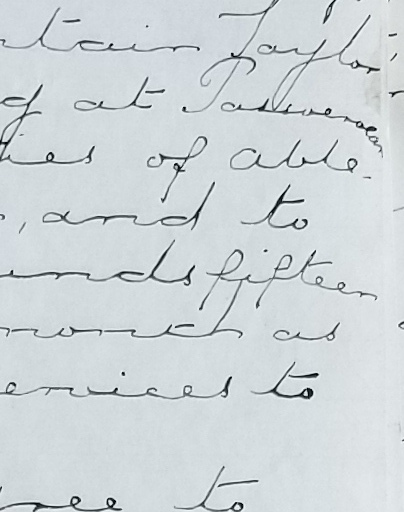 rtain Taylor
g at
ies of able-
, and to
unds fifteen
month as
ervices to
ree to